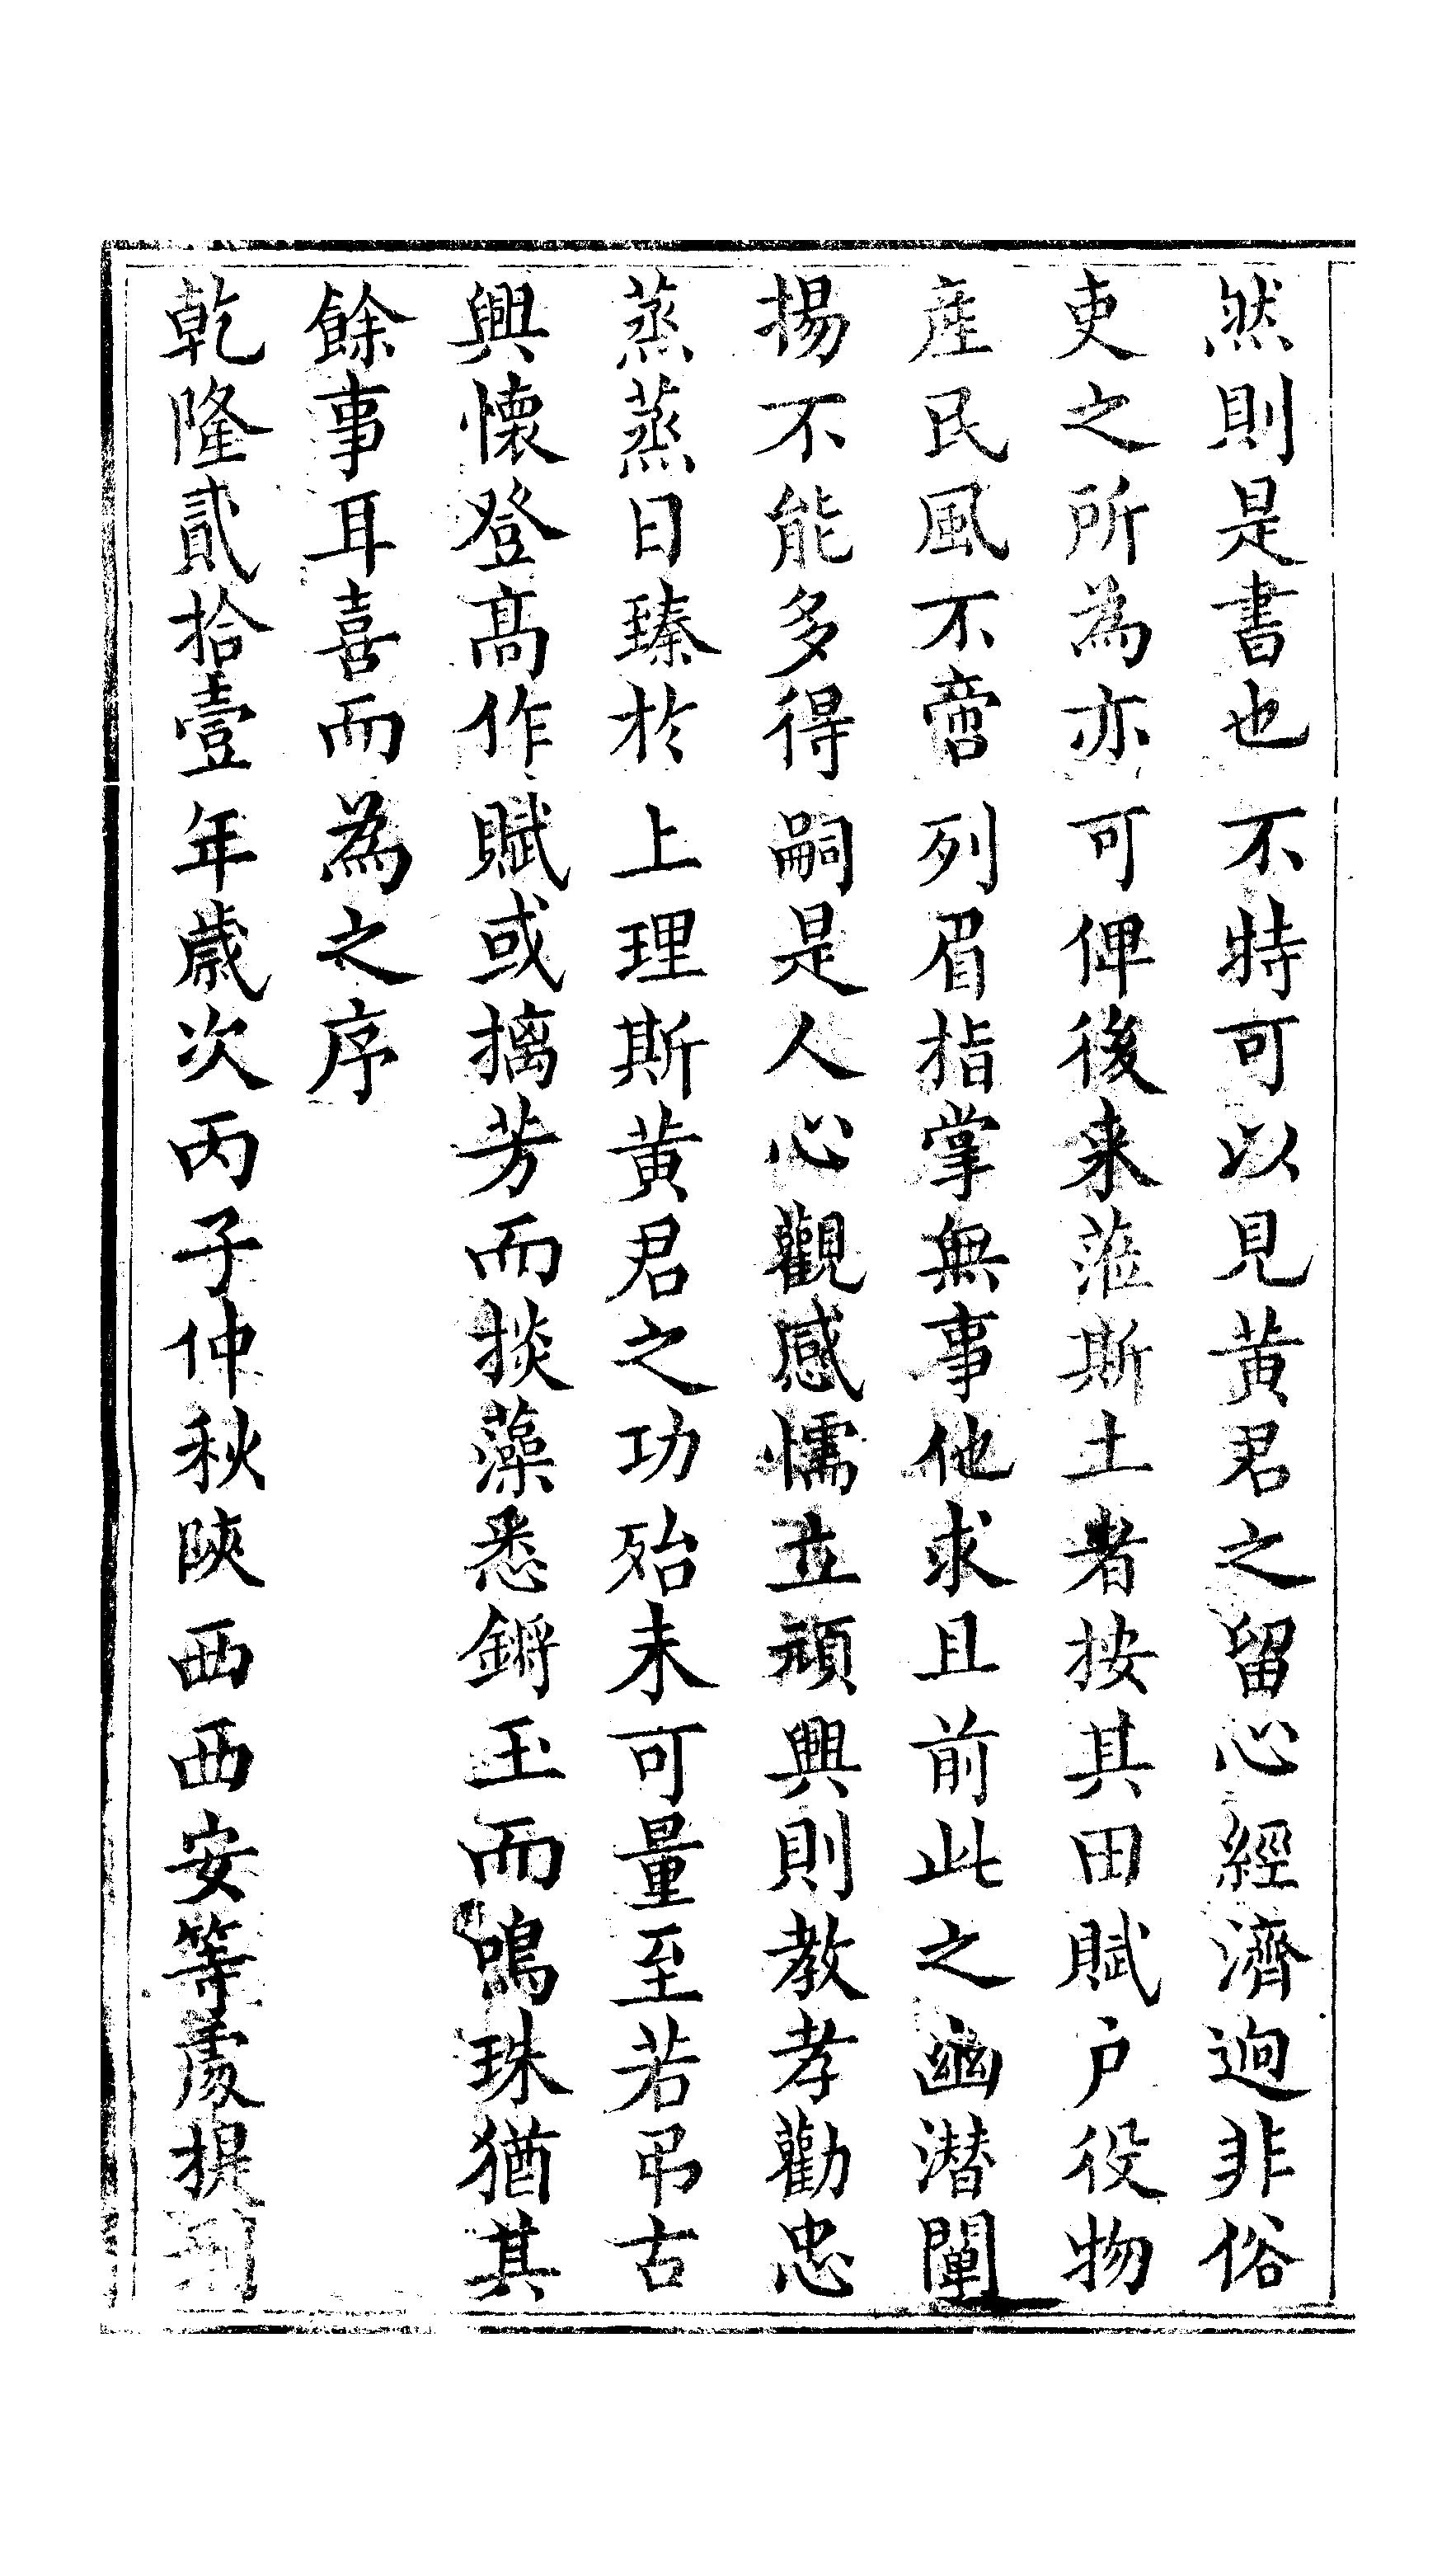 然則是書也不特可以見黄君之留心經濟迥非俗
吏之所為亦可俾後来蒞斯土者按其田賦户役物
產民風不啻列眉指掌無事他求且前此之幽潜闡
揚不能多得嗣是人心觀感懦立頑興則教孝勸忠
蒸蒸日臻於上理斯黄君之功殆未可量至若弔古
興懷登高作賦或摛芳而掞藻悉鏘玉而鳴珠猶其
餘事耳喜而為之序
乾隆貳拾壹年歲次丙子仲秋陝西西安等處提刑